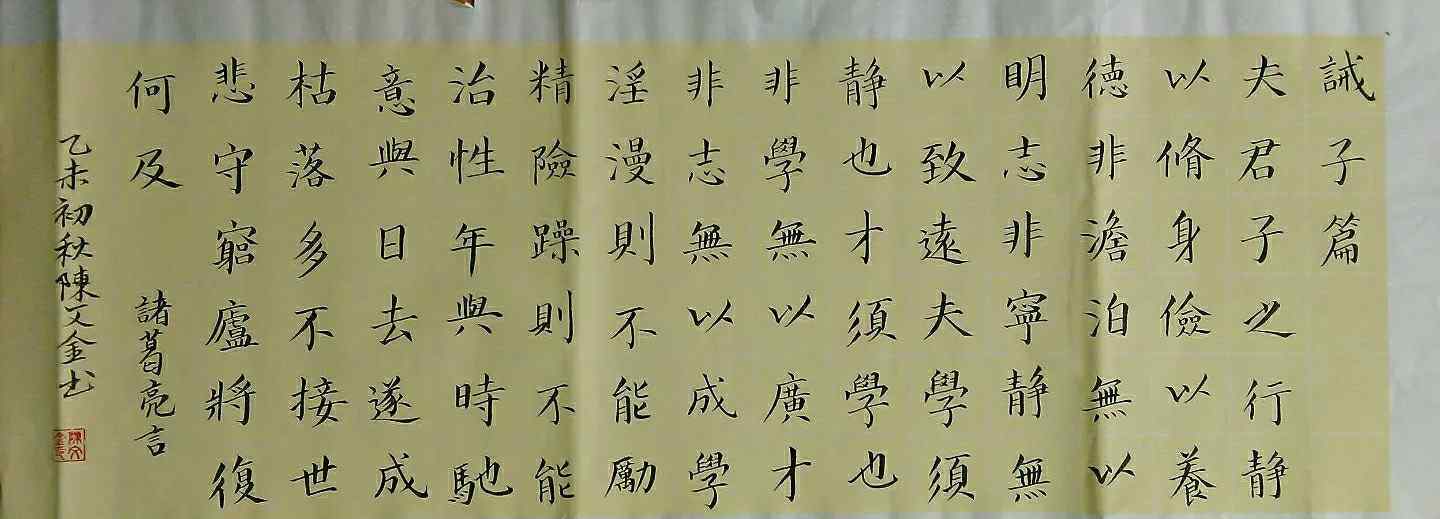 誡子篇
夫君子之行静
以脩身儉以養
德非澹泊無以
明志非寧静無
以致遠夫學須
静也才須學也
非學無以廣才
非志無以成學
淫漫則不能勵
精險躁則不能
治性年與時馳
意與日去遂成
枯落多不接世
悲守窮廬將復
何及 諸葛亮言
乙未初秋陳文金书